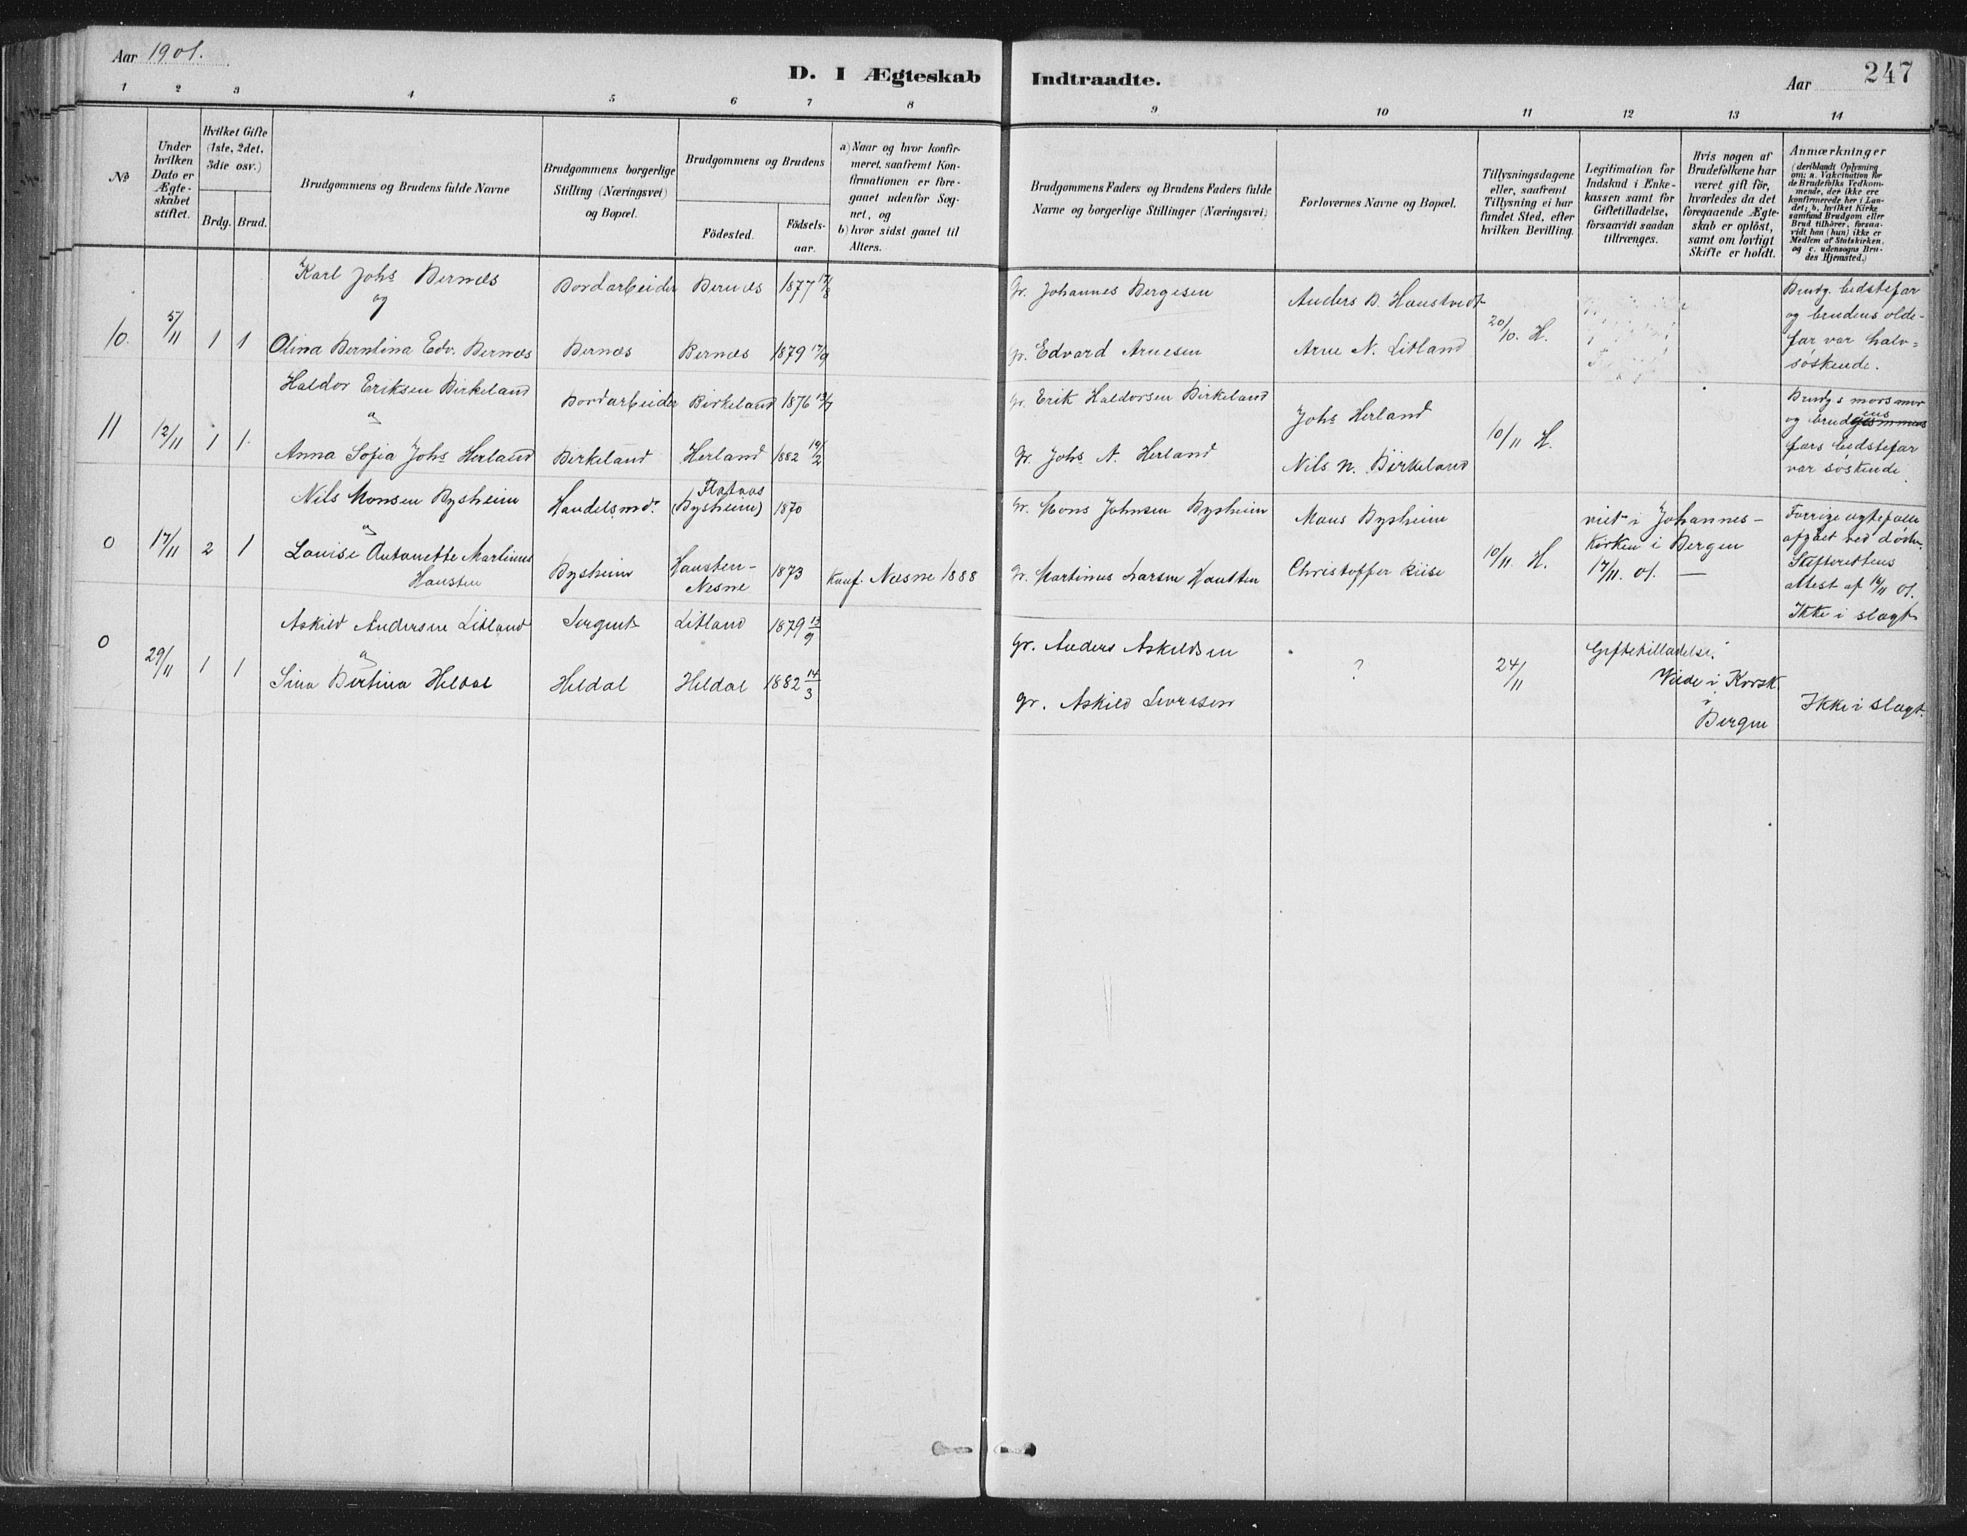 Aar 1901.
D. I Ægteskab Indtraadte.
Aar 247
1 2 3 4 5 6 7 8 9 10 11 12 13 14
No
Under hvilken Dato er Ægteskabet stiftet.
Hvilket Gifte (1ste, 2det, 3die osv.)
Brdg. Brud.
Brudgommens og Brudens fulde Navne
Brudgommens borgerlige Stilling (Næringsvei) og Bopæl.
Brudgommens og Brudens
Födested. Födselsaar.
a) Naar og hvor konfirmeret, saafremt Konfirmationen er foregaaet udenfor Sognet, og
b) hvor sidst gaaet til Alters.
Brudgommens Faders og Brudens Faders fulde Navne og borgerlige Stillinger (Næringsvei)
Forlovernes Navne og Bopæl.
Tillysningsdagene eller, saafremt Tillysning ei har fundet Sted, efter hvilken Bevilling.
Legitimation for Indskud i Enkekassen samt for Giftetilladelse, forsaavidt saadan tiltrænges.
Hvis nogen af Brudefolkene har været gift för, hvorledes da det foregaaende Ægteskab er oplöst, samt om lovligt Skifte er holdt.
Anmærkninger (deriblandt Oplysning om: a. Vakcination for de Brudefolks Vedkommende, der ikke ere konfirmerede her i Landet; b. hvilket Kirkesamfund Brudgom eller Brud tilhörer, forsaavidt han (hun) ikke er Medlem af Statskirken, og c. udensogns Brudes Hjemsted.)
10. 5/11 1 1
Karl Johs Bernes
og
Olina Berntina Edv. Bernes
Bordarbeider
Bernes
Bernes 1877 17/8
Bernes 1879 17/9
Gr. Johannes Bergesen
Gr. Edvard Arnesen
Anders B. Haustvedt
Arne N. Litland
20/10. H.
Brudg. bedstefar
og brudens olde-
far var halv=
søskende.
11 12/11 1 1.
Haldor Eriksen Birkeland
a
Anna Sofia Johs Herland
Bordarbeider
Birkeland
Birkeland 1876 13/7
Herland 1882 19/2
Gr. Erik Haldorsen Birkeland
Gr. Johs A. Herland
Johs Herland
Nils N. Birkeland
10/11 H.
Brudgs morsmor
og brudens
fars bedstefar
var søskende.
0 17/11 2 1
Nils Monsen Bysheim
a
Louise Antonette Martinus
Hausten
Handelsmd.
Bysheim
Flataas
(Bysheim) 1870
Hausten-
Nesne 1873
Konf. Nesne 1888
Gr. Mons Johnsen Bysheim
Gr. Martinus Larsen Hausten
Mons Bysheim
Christoffer Riise
10/11. H.
viet i Johannes-
kirken i Bergen
17/11. 01. —
Forrige ægtefælle
afgået ved døden.
Skifterettens
attest af 14/11 01.
Ikke i slægt
0 29/11 1 1
Askild Andersen Litland
a
Sina Bertina Heldal
Sergent
Heldal
Litland 1879 13/9
Heldal 1882 14/3
Gr. Anders Askildsen
Gr. Askild Iversen
?
24/11
Giftetilladelse.
Viede i Korsk.
i
Bergen
Ikke i slægt.